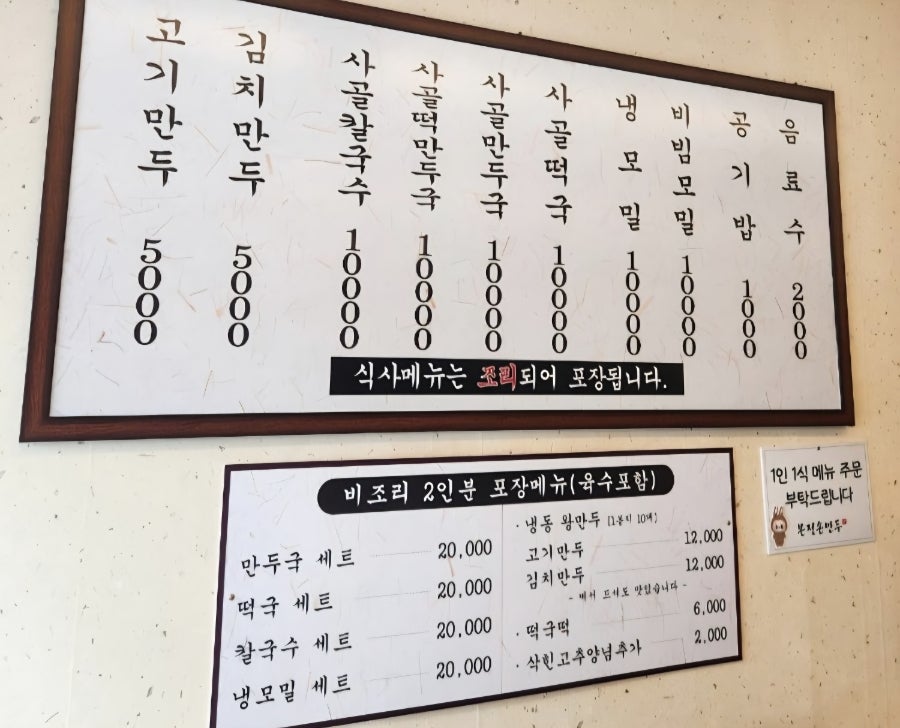 고기만두 5000
김치만두 5000
사골칼국수 10000
사골떡만두국 10000
사골만두국 10000
사골떡국 10000
냉모밀 10000
비빔모밀 10000
공기밥 1000
음료수 2000
식사메뉴는 조리되어 포장됩니다.
비조리 2인분 포장메뉴(육수포함)
만두국 세트 20,000
떡국 세트 20,000
칼국수 세트 20,000
냉모밀 세트 20,000
· 냉동 왕만두 [1봉지 10개]
고기만두 12,000
김치만두 12,000
- 쪄서 드셔도 맛있습니다 -
· 떡국떡 6,000
· 삭힌고추양념추가 2,000
1인 1식 메뉴 주문
부탁드립니다